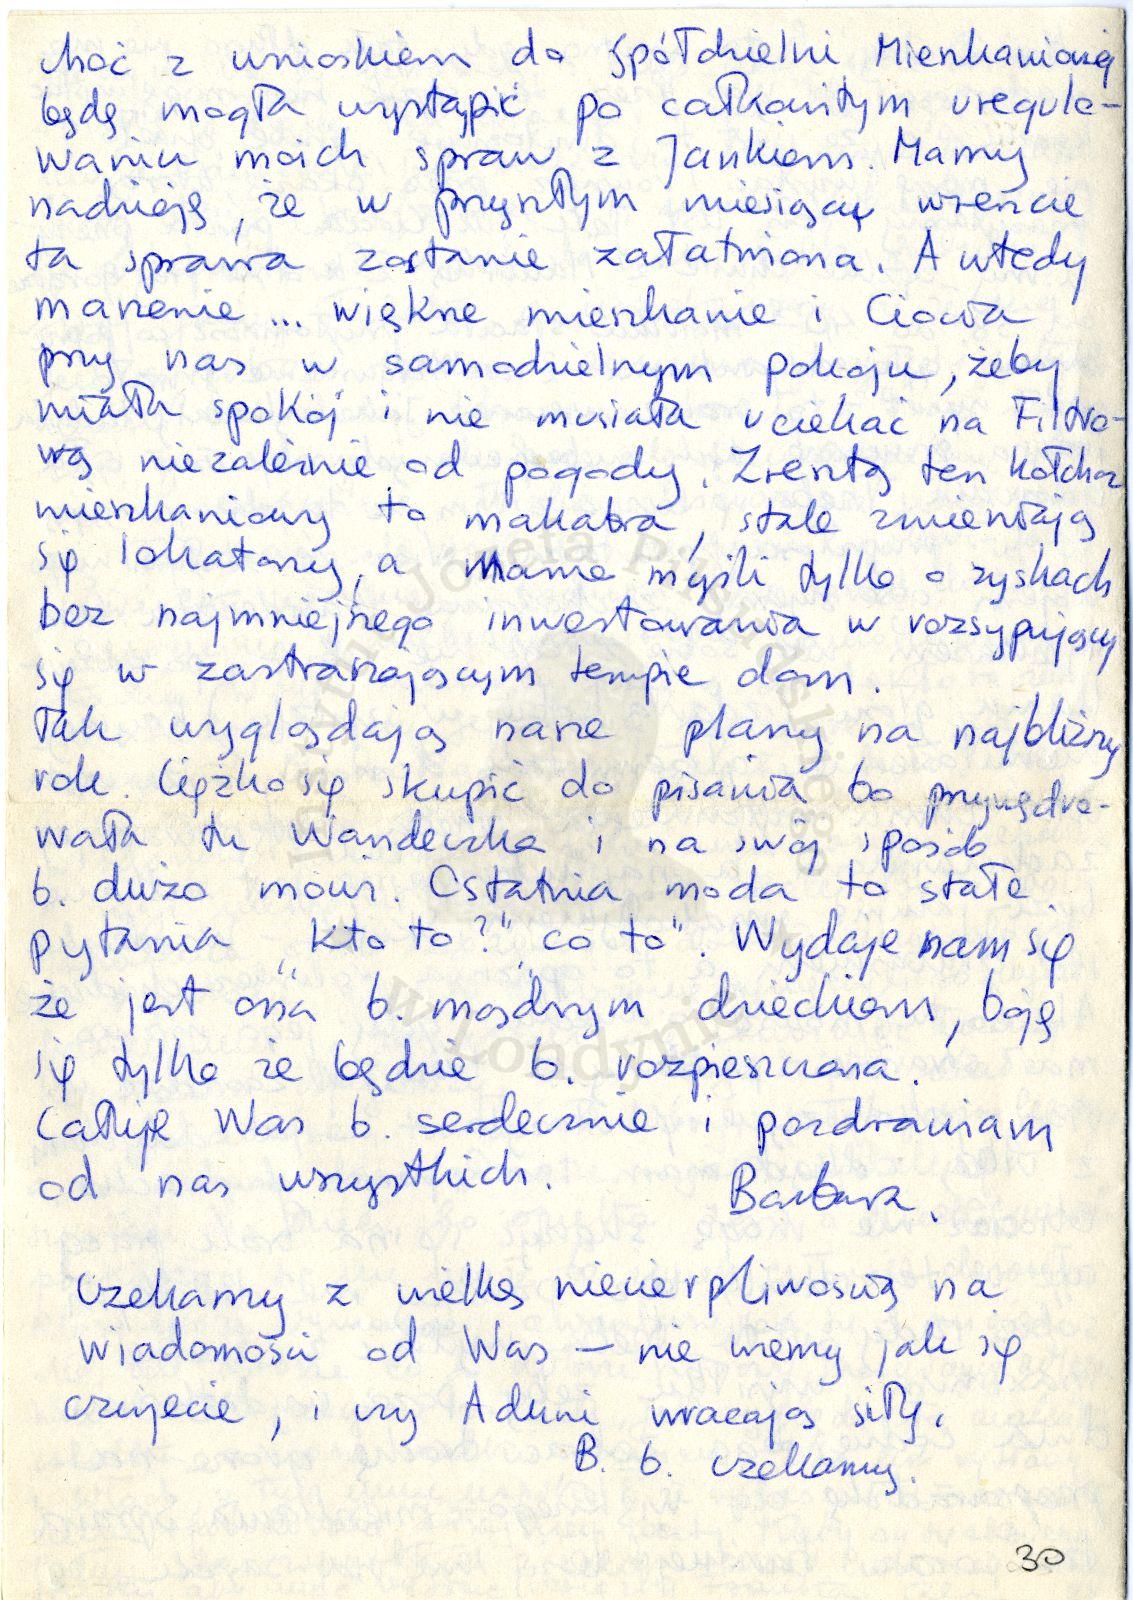 choć z wnioskiem do Spółdzielni Mieszkaniowej
będę mogła wystąpić po całkowitym uregulo-
waniu moich spraw z Jankiem. Mamy
nadzieję, że w przyszłym miesiącu wreszcie
ta sprawa zostanie załatwiona. A wtedy
marzenie... większe mieszkanie i Ciocia
przy nas w samodzielnym pokoju, żeby
miała spokój i nie musiała uciekać na Filtro-
wą niezależnie od pogody. Zresztą ten kołchoz
mieszkaniowy to makabra, stale zmieniają
się lokatorzy, a Mama myśli tylko o zyskach
bez najmniejszego inwestowania w rozsypujący
się w zastraszającym tempie dom.
Tak wyglądają nasze plany na najbliższy
rok. Ciężko się skupić do pisania bo przywędro-
wała tu Wandeczka i na swój sposób
b. dużo mówi. Ostatnia moda to stałe
pytania „kto to?" „co to". Wydaje nam się
że jest ona b. mądrym dzieckiem, boję
się tylko że będzie b. rozpieszczona.
Całuję Was b. serdecznie i pozdrawiam
od nas wszystkich. Barbara.
Czekamy z wielką niecierpliwością na
wiadomości od Was — nie wiemy jak się
czujecie, i czy Aduni wracają siły.
B. b. czekamy.
30
Instytut Józefa Piłsudskiego
w Londynie